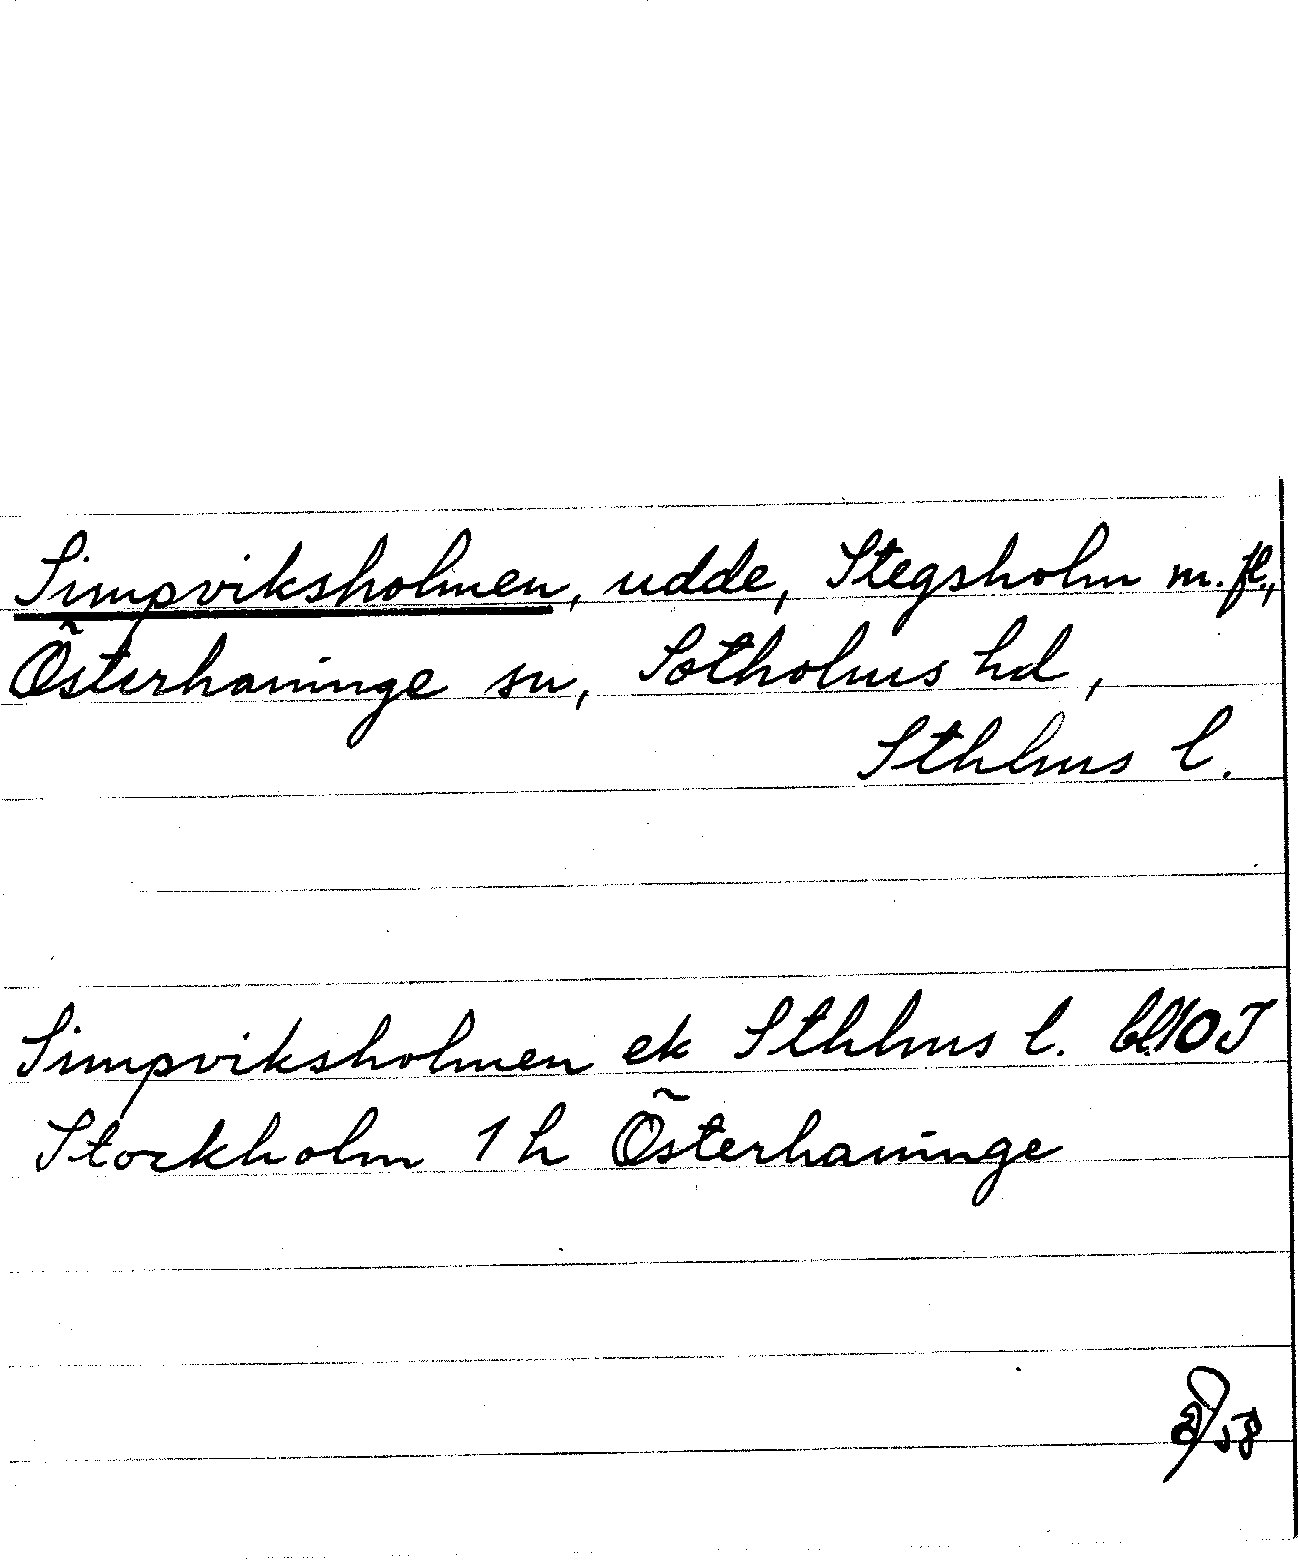 Simpviksholmen, udde, Stegsholm m. fl.,
Österhaninge sn, Sotholms hd,
Sthlms l.
Simpviksholmen ek Sthlms l. bl. 10 I
Stockholm 1 h Österhaninge
58